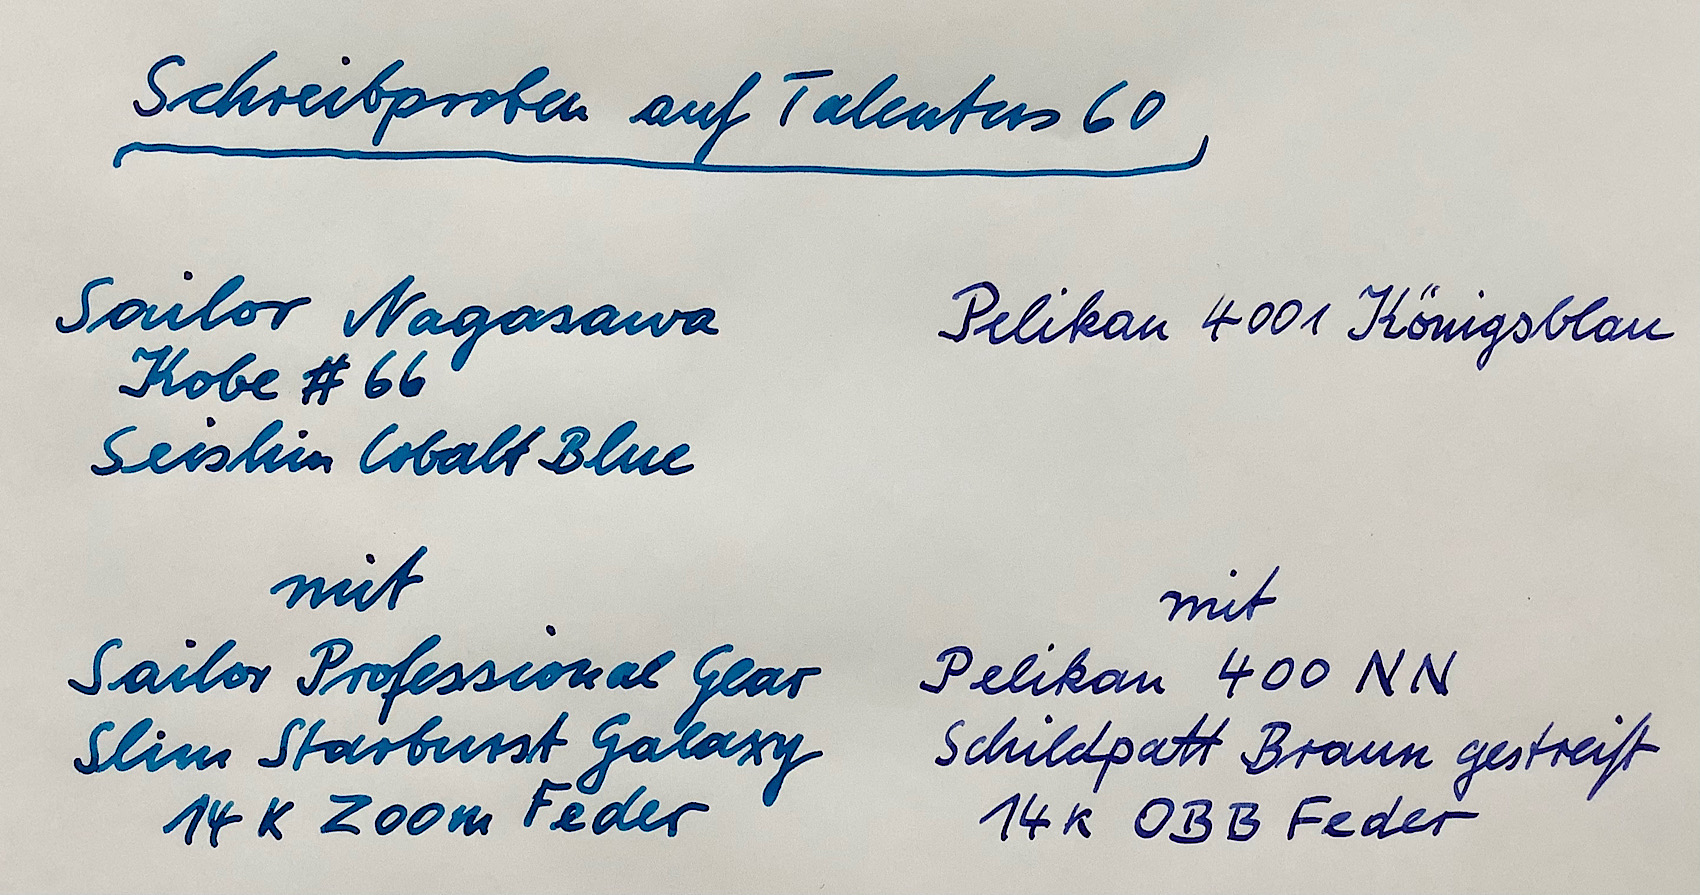 Schreibproben auf Talentus 60
Sailor Nagasawa
Kobe # 66
Seishin Cobalt Blue
mit
Sailor Professional Gear
Slim Starburst Galaxy
14 K Zoom Feder
Pelikan 4001 Königsblau
mit
Pelikan 400 NN
Schildpatt Braun gestreift
14 K OBB Feder